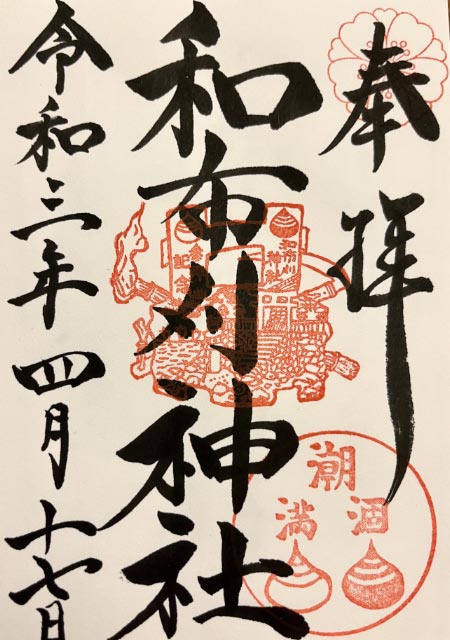 奉拝
和布刈神社
令和三年四月十七日
和布刈
神社
参拝
記念
潮
涸
満